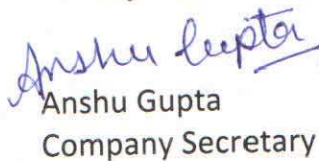 Anshu Gupta
Anshu Gupta
Company Secretary